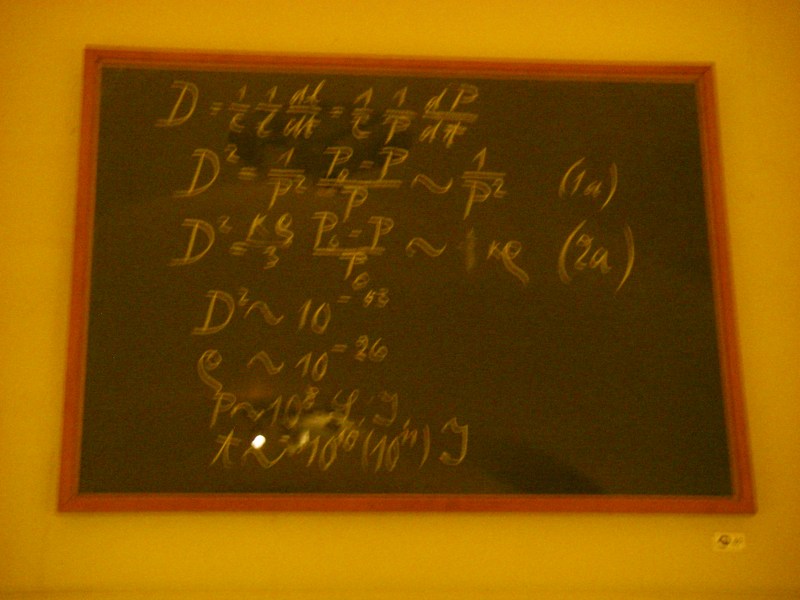 D = 1/c 1/l dl/dt = 1/c 1/P dP/dt
D² = 1/P² P₀-P/P ~ 1/P² (1a)
D² = κϱ/3 P₀-P/P₀ ~ 1 κϱ (2a)
D² ~ 10⁻⁵³
ϱ ~ 10⁻²⁶
P ~ 10⁸ L. J
t ~ 10¹⁰ (10¹¹) J